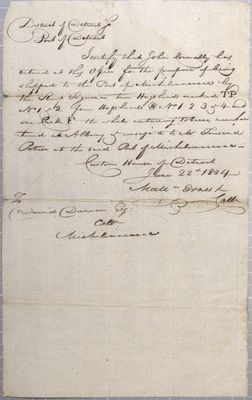 District of Detroit
Port of Detroit
I certify that John Connolly has
entered at this Office for the purpose of being
shipped to the Port of Michilimacinac by
the Sloop two Hogsheads marked TP
No 1 & 2 four Hogsheads No 1 2 3 5 4 and
one the whole containing
at Albany & consigned to Mr
at the said Port of Michilimacinac
Custom House of Detroit
June 22d 1804
Matt Ernest
Collr
To
David Duncan Esq
Collr
Michilimacinac